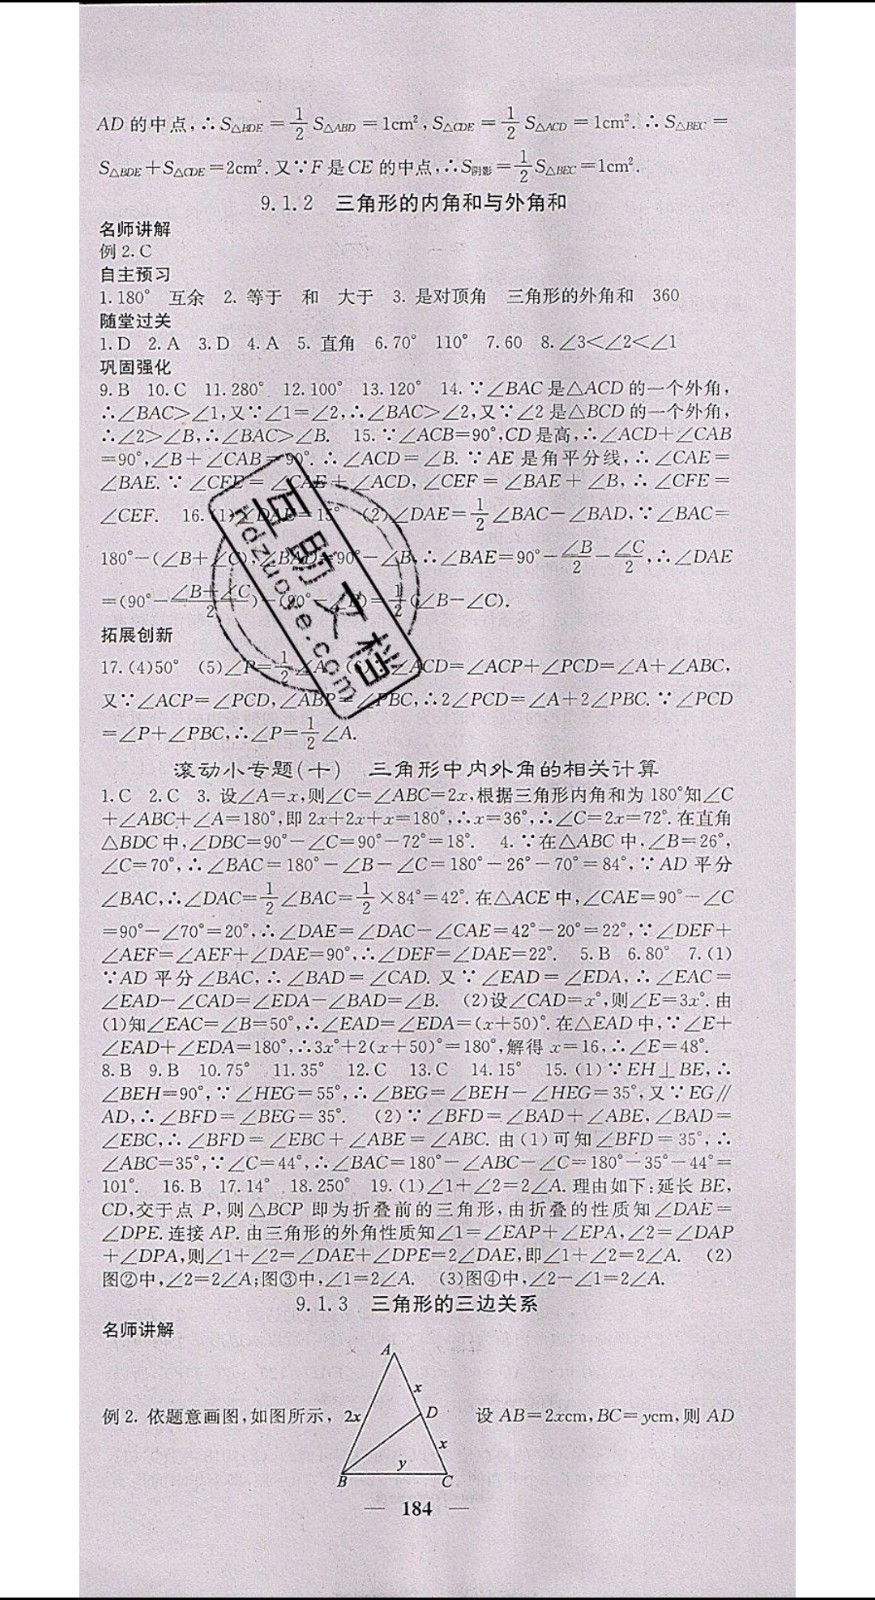 AD 的中点,∴S△BDE=1/2 S△ABD=1cm²,S△CDE=1/2 S△ACD=1cm².∴S△BEC=
S△BDE+S△CDE=2cm².又∵F 是 CE 的中点,∴S阴影=1/2 S△BEC=1cm².
9.1.2 三角形的内角和与外角和
名师讲解
例 2.C
自主预习
1.180° 互余 2.等于 和 大于 3.是对顶角 三角形的外角和 360
随堂过关
1.D 2.A 3.D 4.A 5.直角 6.70° 110° 7.60 8.∠3<∠2<∠1
巩固强化
9.B 10.C 11.280° 12.100° 13.120° 14.∵∠BAC 是△ACD 的一个外角,
∴∠BAC>∠1,又∵∠1=∠2,∴∠BAC>∠2,又∵∠2 是△BCD 的一个外角,
∴∠2>∠B,∴∠BAC>∠B. 15.∵∠ACB=90°,CD 是高,∴∠ACD+∠CAB
=90°,∠B+∠CAB=90°.∴∠ACD=∠B.∵AE 是角平分线,∴∠CAE=
∠BAE.∵∠CFE=∠CAE+∠ACD,∠CEF=∠BAE+∠B,∴∠CFE=
∠CEF. 16.(1)∠DAE=15° (2)∠DAE=1/2∠BAC-∠BAD,∵∠BAC=
180°-(∠B+∠C),∠BAD=90°-∠B,∴∠BAE=90°-∠B/2-∠C/2,∴∠DAE
=(90°-(∠B+∠C)/2)-(90°-∠B)=1/2(∠B-∠C).
拓展创新
17.(4)50° (5)∠P=1/2∠A ∠ACD=∠ACP+∠PCD=∠A+∠ABC,
又∵∠ACP=∠PCD,∠ABP=∠PBC,∴2∠PCD=∠A+2∠PBC.∵∠PCD
=∠P+∠PBC,∴∠P=1/2∠A.
滚动小专题(十) 三角形中内外角的相关计算
1.C 2.C 3.设∠A=x,则∠C=∠ABC=2x,根据三角形内角和为 180°知∠C
+∠ABC+∠A=180°,即 2x+2x+x=180°,∴x=36°,∴∠C=2x=72°.在直角
△BDC 中,∠DBC=90°-∠C=90°-72°=18°. 4.∵在△ABC 中,∠B=26°,
∠C=70°,∴∠BAC=180°-∠B-∠C=180°-26°-70°=84°,∵AD 平分
∠BAC,∴∠DAC=1/2∠BAC=1/2×84°=42°.在△ACE 中,∠CAE=90°-∠C
=90°-∠70°=20°,∴∠DAE=∠DAC-∠CAE=42°-20°=22°,∵∠DEF+
∠AEF=∠AEF+∠DAE=90°,∴∠DEF=∠DAE=22°. 5.B 6.80° 7.(1)
∵AD 平分∠BAC,∴∠BAD=∠CAD.又∵∠EAD=∠EDA,∴∠EAC=
∠EAD-∠CAD=∠EDA-∠BAD=∠B. (2)设∠CAD=x°,则∠E=3x°.由
(1)知∠EAC=∠B=50°,∴∠EAD=∠EDA=(x+50)°.在△EAD 中,∵∠E+
∠EAD+∠EDA=180°,∴3x°+2(x+50)°=180°,解得 x=16,∴∠E=48°.
8.B 9.B 10.75° 11.35° 12.C 13.C 14.15° 15.(1)∵EH⊥BE,∴
∠BEH=90°,∵∠HEG=55°,∴∠BEG=∠BEH-∠HEG=35°,又∵EG∥
AD,∴∠BFD=∠BEG=35°. (2)∵∠BFD=∠BAD+∠ABE,∠BAD=
∠EBC,∴∠BFD=∠EBC+∠ABE=∠ABC.由(1)可知∠BFD=35°,∴
∠ABC=35°,∵∠C=44°,∴∠BAC=180°-∠ABC-∠C=180°-35°-44°=
101°. 16.B 17.14° 18.250° 19.(1)∠1+∠2=2∠A.理由如下:延长 BE,
CD,交于点 P,则△BCP 即为折叠前的三角形,由折叠的性质知∠DAE=
∠DPE.连接 AP.由三角形的外角性质知∠1=∠EAP+∠EPA,∠2=∠DAP
+∠DPA,则∠1+∠2=∠DAE+∠DPE=2∠DAE,即∠1+∠2=2∠A. (2)
图②中,∠2=2∠A;图③中,∠1=2∠A. (3)图④中,∠2-∠1=2∠A.
9.1.3 三角形的三边关系
名师讲解
A
x
例 2.依题意画图,如图所示, 2x D 设 AB=2xcm,BC=ycm,则 AD
x
y
B C
— 184 —
互助文档
hdzuoye.com